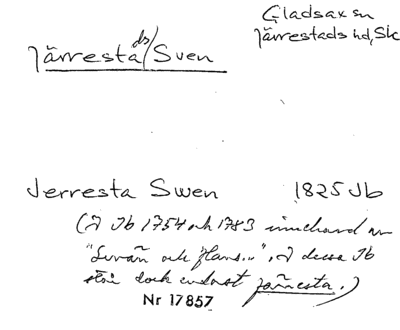 Gladsax sn
Järrestads hd, Sk
Järresta ds/ Sven
Jerresta Swen 1825 Jb
(I Jb 1754 och 1783 innehand av
"Svän och Hans..", I dessa Jb
står dock endast järresta.)
Nr 17857